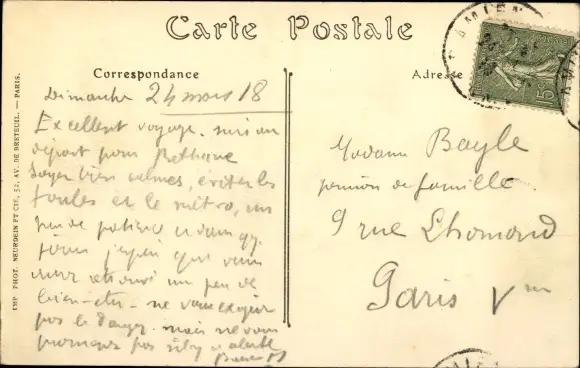 Carte Postale
Correspondance
Adresse
Dimanche 24 mars 18
Excellent voyage. suis au
départ pour Béthune
Soyez bien calmes, évitez les
foules et le métro, un
peu de patience et dans qq.
jours j'espère que vous
aurez retrouvé un peu de
bien-être - ne vous exagérez
pas le danger mais ne vous
promenez pas s'il y a alerte
Madame Bayle
pension de famille
9 rue Lhomond
Paris Vme
AMIENS
15
IMP. PHOT. NEURDEIN ET CIE, 52, AV. DE BRETEUIL. — PARIS.